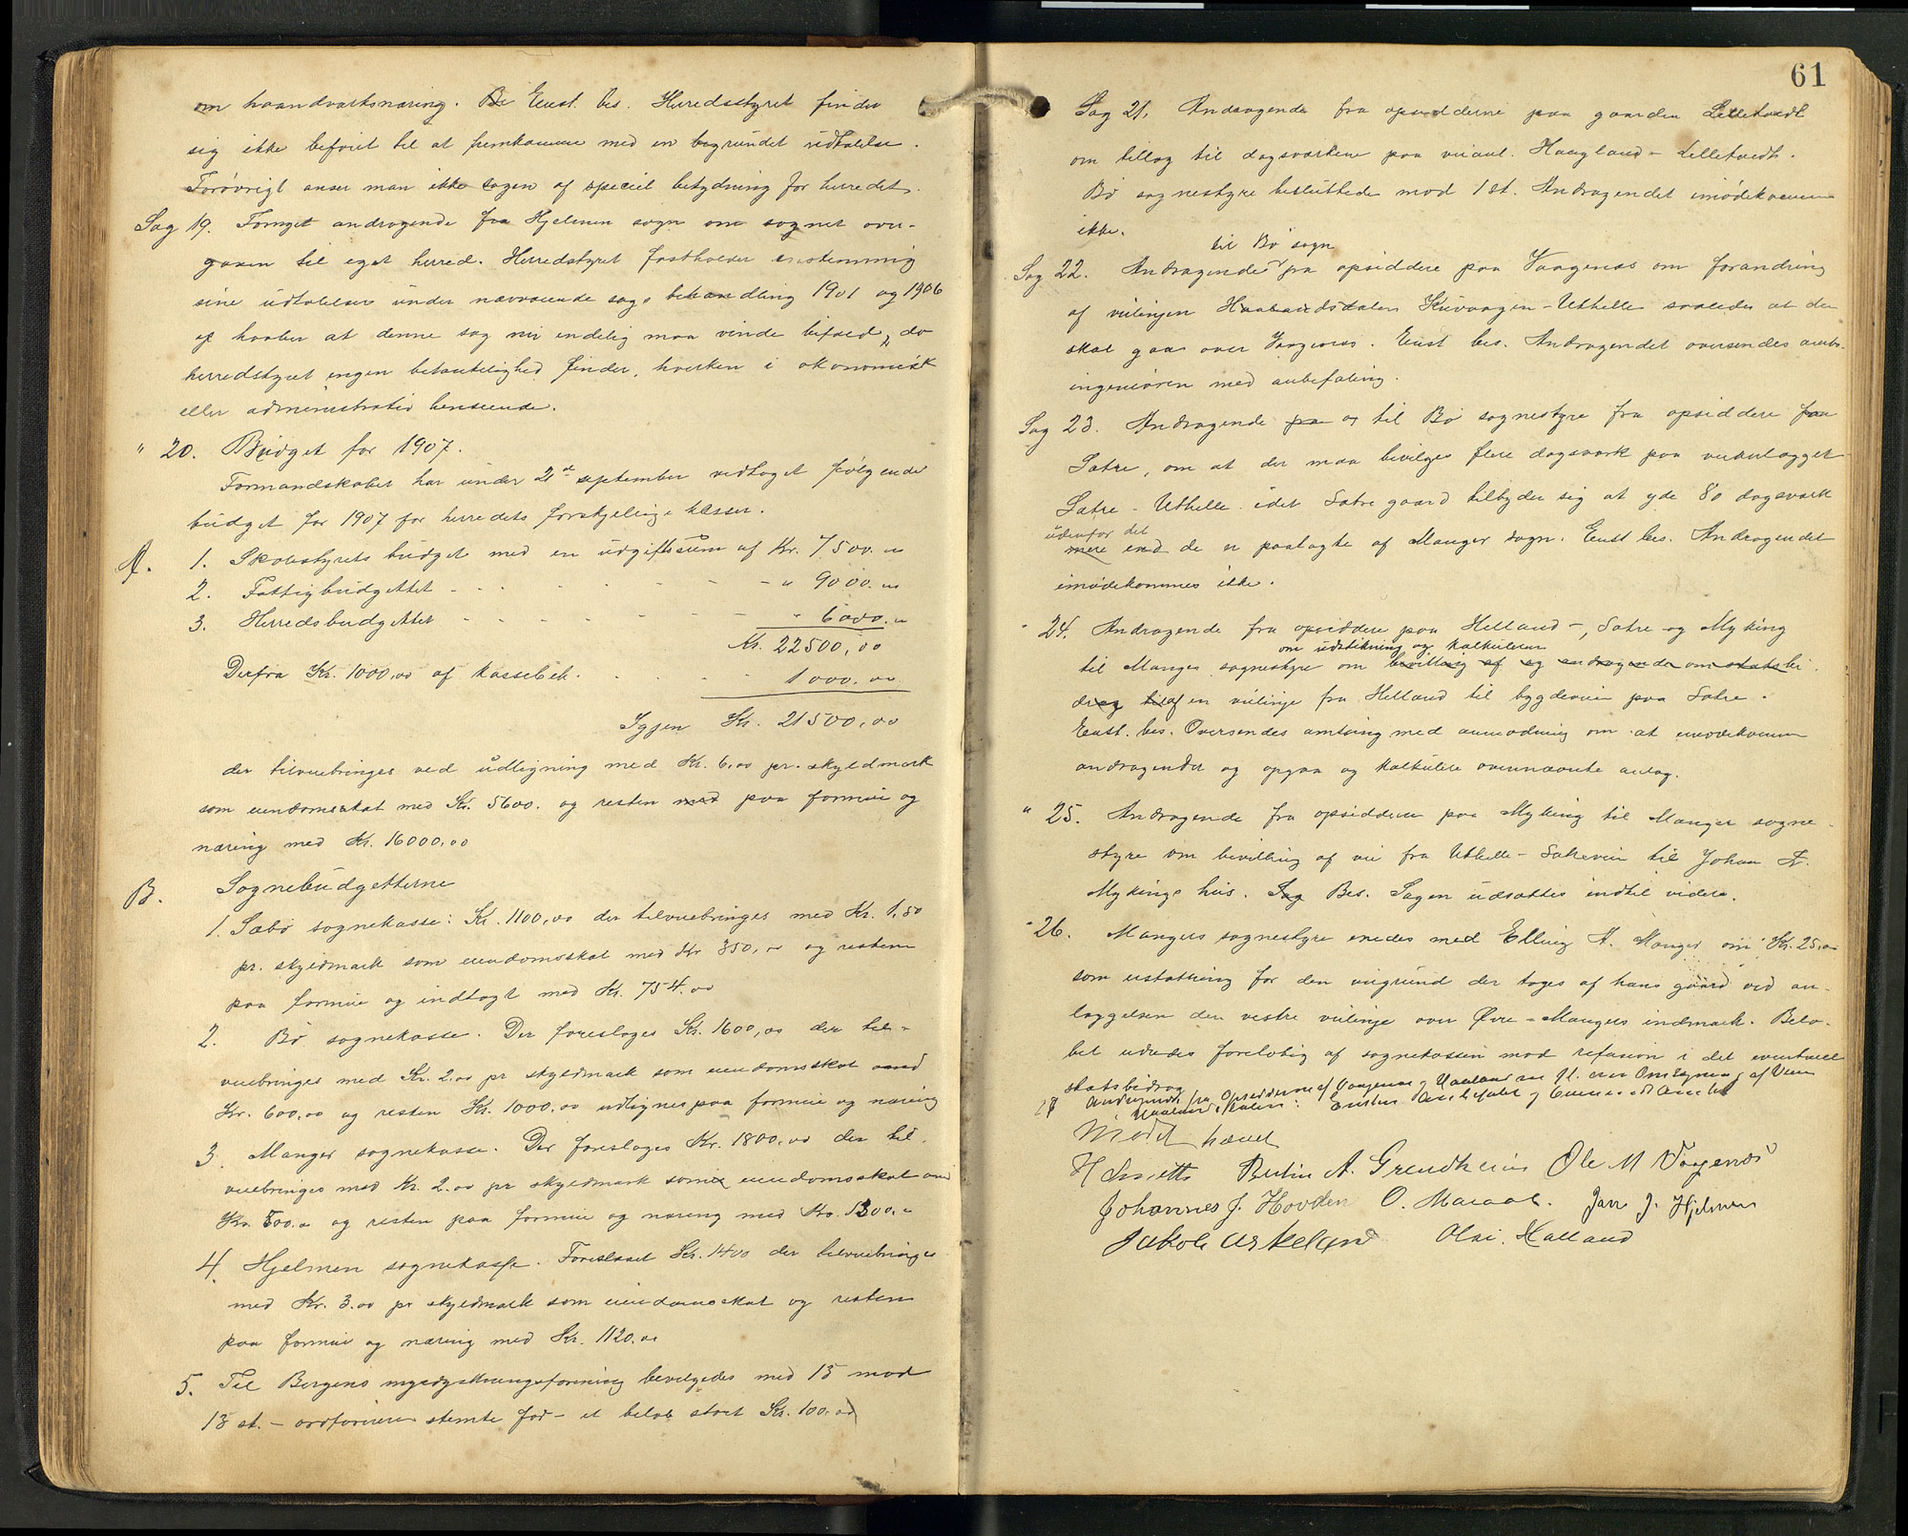 om haandværksnæring. Enst. bes. Herredsstyret finder
sig ikke beføiet til at fremkomme med en begrundet udtalelse.
Forøvrigt anser man ikke sagen af speciel betydning for herredet.
Sag 19. Fornyet andragende fra Hjelmen sogn om sognet over-
gaaen til eget herred. Herredstyret fastholder enstemmig
sine udtalelser under nærværende sags behandling 1901 og 1906
og haaber at denne sag nu endelig maa vinde bifald, da
herredstyret ingen betænkelighed finder, hverken i økonomisk
eller administrativ henseende.
" 20. Budget for 1907.
Formandskabet har under 21de september vedtaget følgende
budget for 1907 for herredets forskjellige kasser.
A. 1. Skolestyrets budget med en udgiftssum af Kr. 7500.00
2. Fattigbudgettet - - - - - - " 9000.00
3. Herredsbudgettet - - - - - - " 6000.00
Kr. 22500,00
Derfra Kr. 1000,00 af kassebeh. - - - 1000.00
Igjen Kr. 21500,00
der tilveiebringes ved udligning med Kr. 6,00 pr. skyldmark
som eiendomsskat med Kr. 5600. og resten med paa formue og
næring med Kr. 16000,00
B. Sognebudgetterne
1. Sæbø sognekasse: Kr. 1100,00 der tilveiebringes med Kr. 1,50
pr. skyldmark som eiendomsskat med Kr 350,00 og resten
paa formue og indtægt med Kr. 754.00
2. Bø sognekasse. Der foreslages Kr. 1600,00 der til-
veiebringes med Kr. 2.00 pr skyldmark som eiendomsskat med
Kr. 600,00 og resten Kr. 1000.00 udlignes paa formue og næring
3. Manger sognekasse. Der foreslages Kr. 1800.00 der til-
veiebringes med Kr. 2.00 pr skyldmark som eiendomsskat med
Kr. 500.00 og resten paa formue og næring med Kr. 1300.00
4. Hjelmen sognekasse. Foreslaaet Kr. 1400 der tilveiebringes
med Kr. 3.00 pr skyldmark som eiendomsskat og resten
paa formue og næring med Kr. 1120.00
5. Til Bergens myrdyrkningsforening bevilgedes med 13 mod
13 st. - ordføreren stemte for - et beløb stort Kr. 100.00
61
Sag 21. Andragende fra opsidderne paa gaarden Lilletvedt
om tillæg til dagsværkene paa veianl. Haugland - Lilletvedt.
Bø sognestyre besluttede mod 1 st. Andragendet imødekommes
ikke.
til Bø sogn
Sag 22. Andragende fra opsiddere paa Vaagenes om forandring
af veilinjen Haalandsdalen Kuvaagen - Uthelle saaledes at den
skal gaa over Vaagenes. Enst bes. Andragendet oversendes amts-
ingeniøren med anbefaling.
Sag 23. Andragende fra og til Bø sognestyre fra opsiddere paa
Sætre, om at der maa bevilges flere dagsværk paa veianlægget
Sætre - Uthelle idet Sætre gaard tilbyder sig at yde 80 dagsværk
udenfor det
mere end de er paalagte af Manger sogn. Enst bes. Andragendet
imødekommes ikke.
" 24. Andragende fra opsiddere paa Helland-, Sætre og Myking
om udstikning og kalkulation
til Manger sognestyre om bevilling af og andragende om statsbi-
drag til af en veilinje fra Helland til bygdeveien paa Sætre.
Enst. bes. Oversendes amtsing med anmodning om at imødekomme
andragendet og opgaa og kalkulere ovennævnte anlæg.
" 25. Andragende fra opsiddere paa Myking til Manger sogne-
styre om bevilling af vei fra Uthelle - Sætreveien til Johan A.
Mykings hus. Sag Bes. Sagen udsættes indtil videre.
" 26. Mangers sognestyre enedes med Elling A. Manger om Kr. 25,00
som erstatning for den veigrund der tages af hans gaard ved an-
læggelsen den vestre veilinje over Øvre - Mangers indmark. Belø-
bet udredes foreløbig af sognekassen mod refusion i det eventuelle
statsbidrag
27 Andragende fra Opsidderne af Vaagenes og Haaland om af Veien
Møtet hævet
A. Grendheim Ole M Vaagenes
Johannes J. Hovden O. Jan J. Hjelmen
Jakob Askeland Olai. Halland